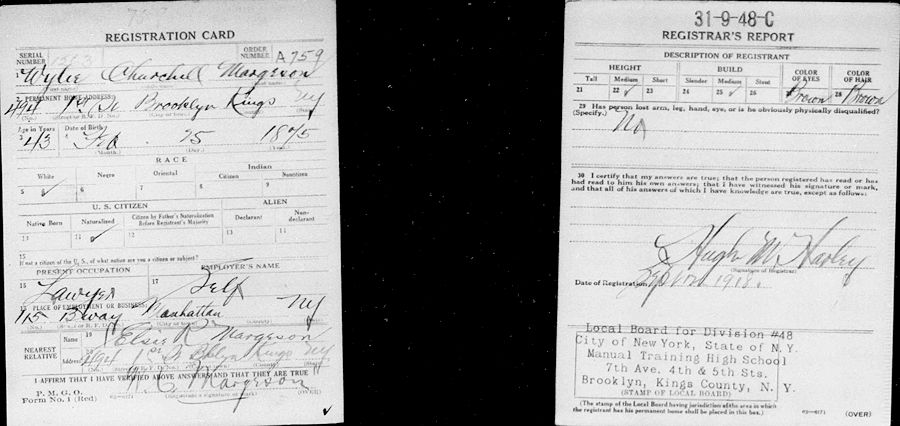 REGISTRATION CARD
SERIAL NUMBER
ORDER NUMBER A759
1 Wylie Churchill Margeson
2 PERMANENT HOME ADDRESS:
494 1st St Brooklyn Kings Ny
(No.) (Street or R. F. D. No.) (City or town) (County) (State)
Age in Years Date of Birth
3 43 4 Feb. 25 1875
(Month.) (Day.) (Year.)
RACE
White Negro Oriental Indian
Citizen Noncitizen
5 ✓ 6 7 8 9
U. S. CITIZEN ALIEN
Native Born Naturalized Citizen by Father's Naturalization Before Registrant's Majority Declarant Non-declarant
10 11 ✓ 12 13 14
15
If not a citizen of the U. S., of what nation are you a citizen or subject?
PRESENT OCCUPATION EMPLOYER'S NAME
16 Lawyer 17 Self
18 PLACE OF EMPLOYMENT OR BUSINESS:
115 Bway Manhattan Ny
(No.) (Street or R. F. D. No.) (City or town) (County) (State)
NEAREST RELATIVE
Name 19 Elsie R Margeson
Address 20 494 1st St Bklyn Kings Ny
(No.) (City or town) (County) (State)
I AFFIRM THAT I HAVE VERIFIED ABOVE ANSWERS AND THAT THEY ARE TRUE
P. M. G. O.
Form No. 1 (Red)
W. C. Margeson
(Registrant's signature or mark) (OVER)
✓
31-9-48-C
REGISTRAR'S REPORT
DESCRIPTION OF REGISTRANT
HEIGHT BUILD COLOR OF EYES COLOR OF HAIR
Tall Medium Short Slender Medium Stout
21 22 ✓ 23 24 25 ✓ 26 27 Brown 28 Brown
29 Has person lost arm, leg, hand, eye, or is he obviously physically disqualified?
(Specify.) No
30 I certify that my answers are true; that the person registered has read or has
had read to him his own answers; that I have witnessed his signature or mark,
and that all of his answers of which I have knowledge are true, except as follows:
Hugh M. Harley
(Signature of Registrar)
Date of Registration Sep 12 1918.
Local Board for Division #48
City of New York, State of N.Y.
Manual Training High School
7th Ave. 4th & 5th Sts.
Brooklyn, Kings County, N. Y.
(STAMP OF LOCAL BOARD)
(The stamp of the Local Board having jurisdiction of the area in which
the registrant has his permanent home shall be placed in this box.)
03-6171 (OVER)